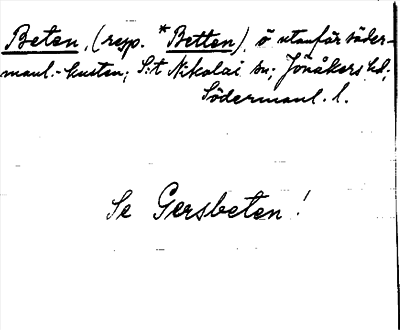 Beten, (resp. *Betten), ö utanför söder-
manl.-kusten; S:t Nikolai sn; Jönåkers hd;
Södermanl. l.
Se Gersbeten!